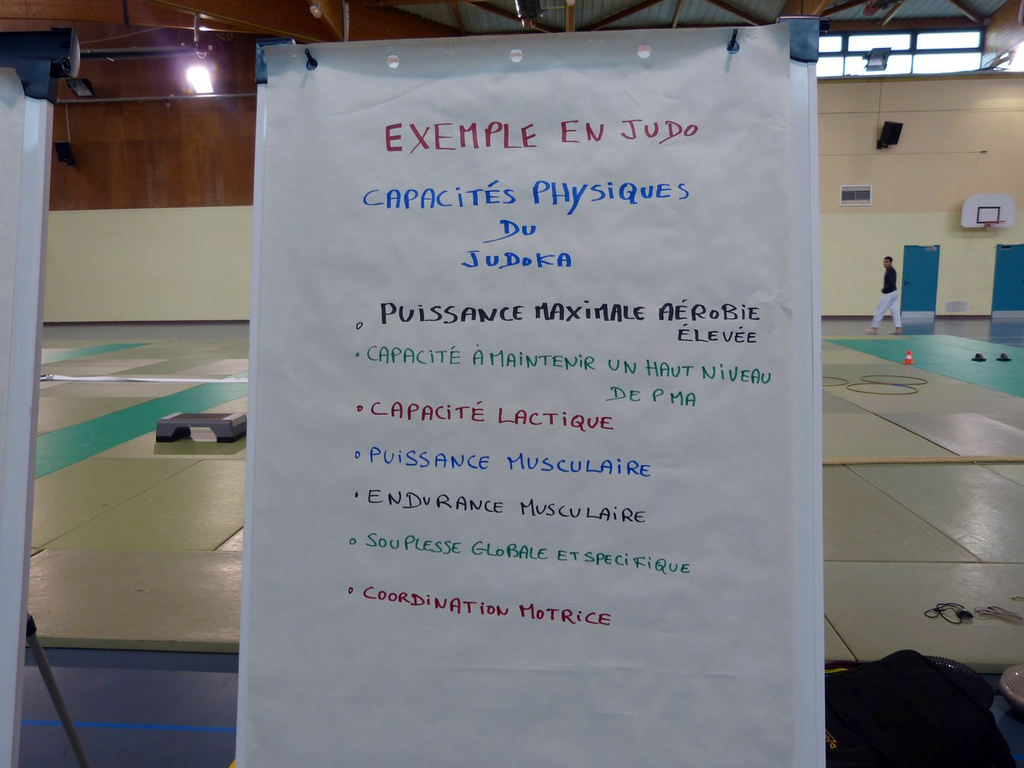 EXEMPLE EN JUDO
CAPACITÉS PHYSIQUES
DU
JUDOKA
° PUISSANCE MAXIMALE AÉROBIE
ÉLEVÉE
• CAPACITÉ À MAINTENIR UN HAUT NIVEAU
DE PMA
° CAPACITÉ LACTIQUE
° PUISSANCE MUSCULAIRE
• ENDURANCE MUSCULAIRE
° SOUPLESSE GLOBALE ET SPECIFIQUE
° COORDINATION MOTRICE